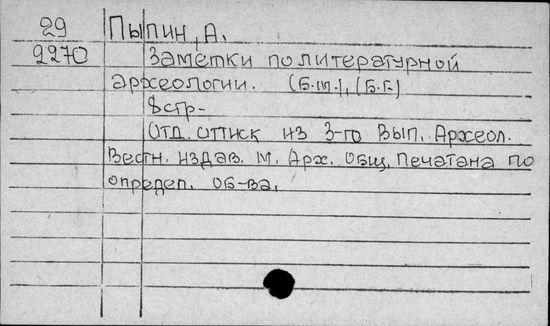 29 Пыпин, А.
2270 Заметки по литературной
археологии. (Б.м.), (Б.г.)
8стр-
Отд. оттиск из 3-го вып. Археол.
Вестн. издав. М. Арх. общ. Печатана по
определ. об-ва.